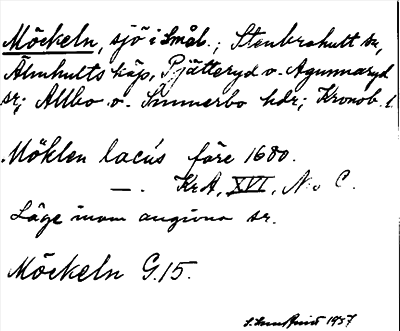 Möckeln, sjö i Smål.; Stenbrohult sn,
Älmhults köp, Pjätteryd o. Agunnaryd
sr; Allbo o. Sunnerbo hdr; Kronob. l.
Möklen lacus före 1680.
— . KrA, XVI, N:o C.
Läge inom angivna sr.
Möckeln G.15.
1957